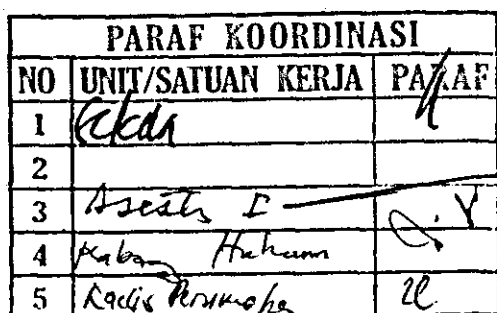 PARAF KOORDINASI
NO UNIT/SATUAN KERJA PARAF
1 Sekda
2
3 Asesten I
4 Kabag Hukum
5 Kadis